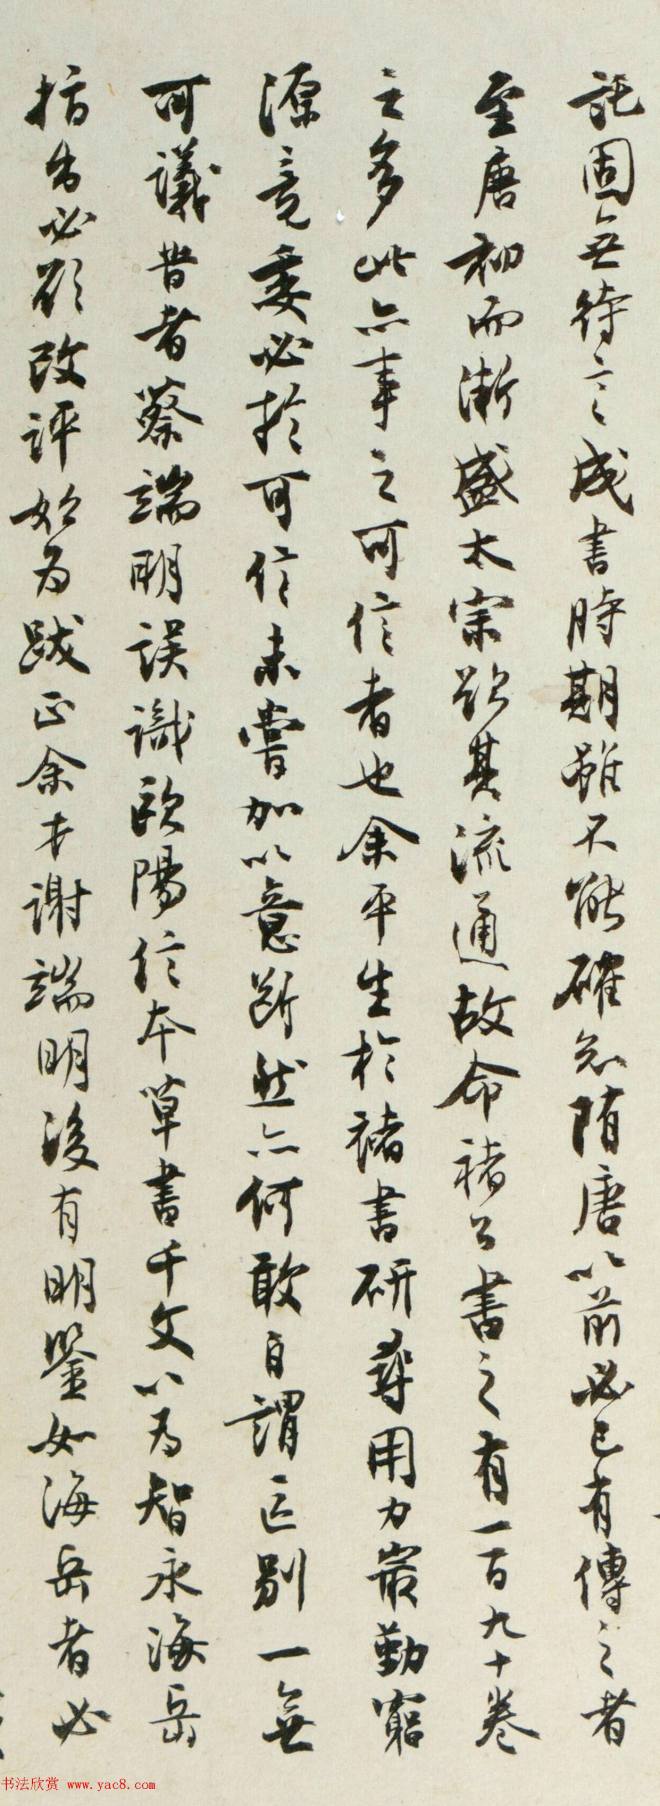 託固無待言成書時期雖不能確知隋唐以前必已有傳之者
至唐初而漸盛太宗欲其流通故命褚公書之有一百九十卷
之多此亦事之可信者也余平生於褚書研尋用力最勤窮
源竟委必於可信未嘗加以意斷然亦何敢自謂區別一無
可議昔者蔡端明誤識歐陽信本草書千文以為智永海岳
指出必欣改評始為跋正余才謝端明後有明鑒如海岳者必
书法欣赏 www.yac8.com